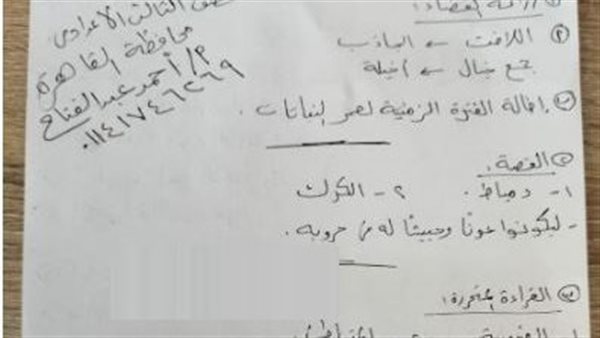 الصف الثالث الاعدادى
محافظة القاهرة
م/ أحمد عبد الفتاح
٠١١٤١٧٤٦٢٦٩
٢ اللافت ← الجاذب
جمع خيال ← أخيلة
إطالة الفترة الزمنية لعمر النباتات.
القصة:
١- دمياط. ٢- الكرك
- ليكونوا عونًا وجيشًا له فى حروبه.
القراءة المتحررة: